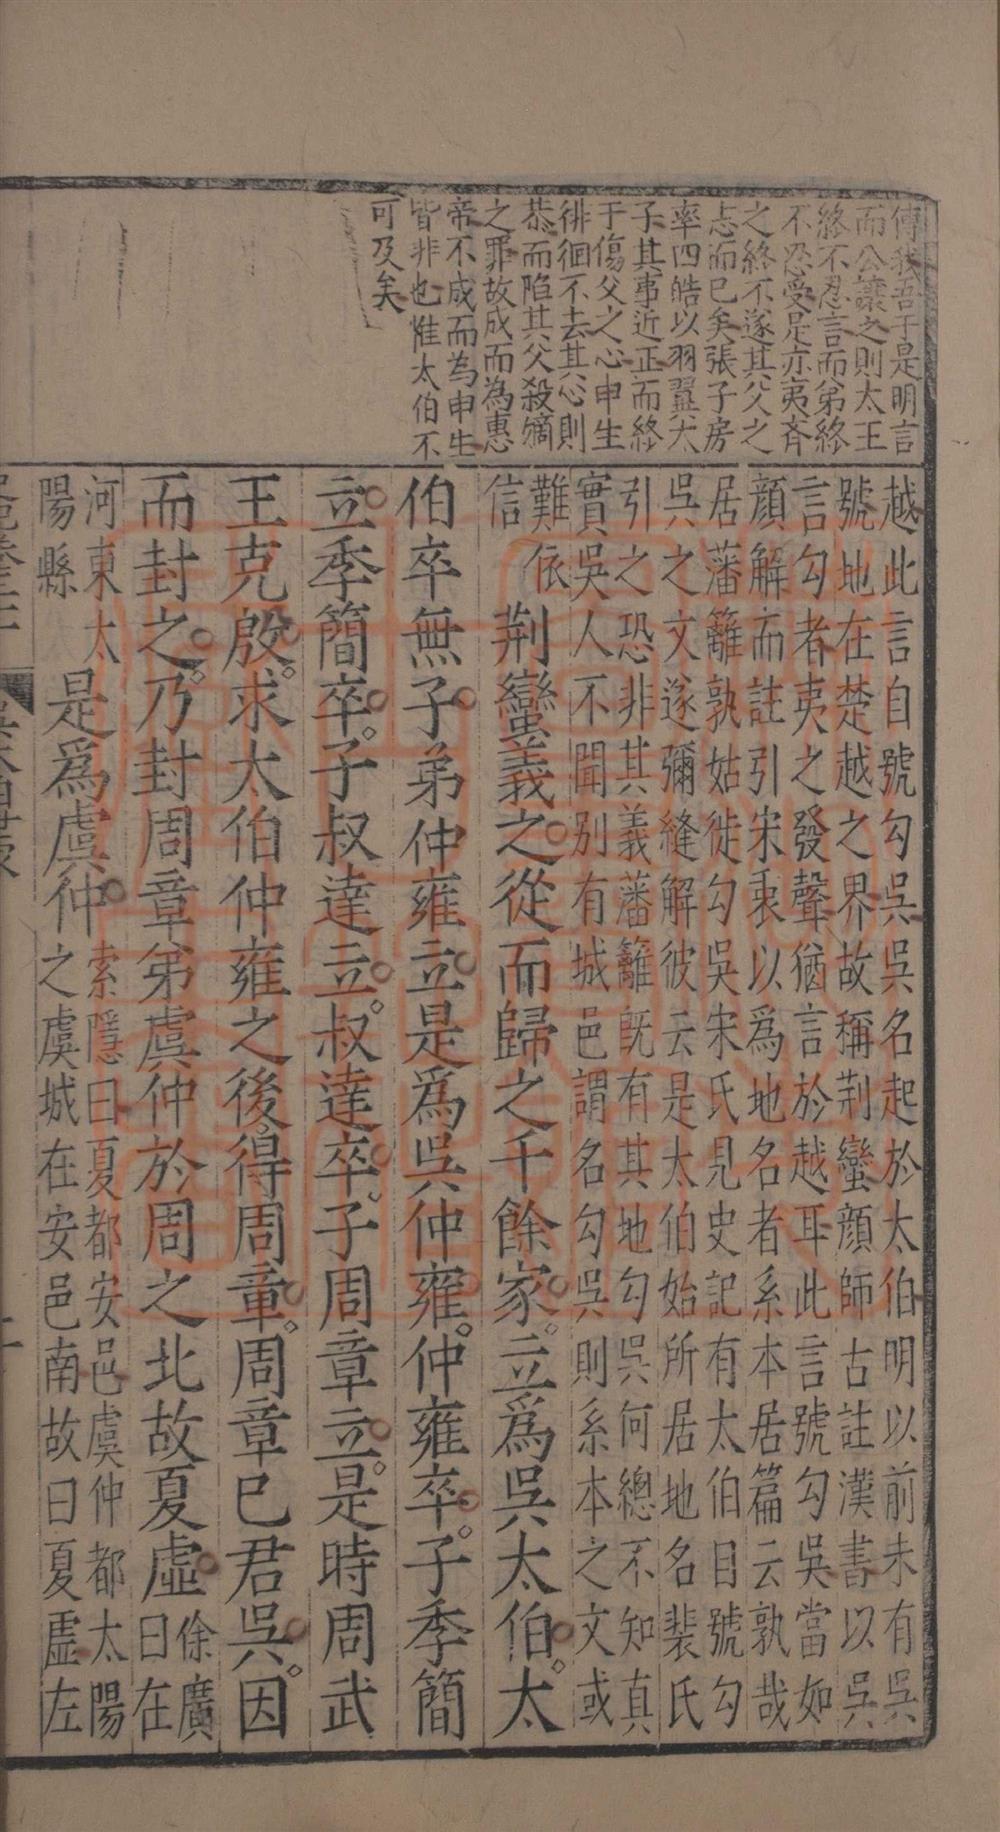 傳我吾子是明言
而公讓之則太王
終不忍言而弟終
不忍受是亦夷齊
之終不遂其父之
志而已矣張子房
率四皓以羽翼太
子其事近正而終
于傷父之心申生
徘徊不去其心則
恭而陷其父殺嫡
之罪故成而為惠
帝不成而為申生
皆非也惟太伯不
可及矣
越此言自號勾吳吳名起於太伯明以前未有吳
號地在楚越之界故稱荆蠻顔師古註漢書以吳
言勾者夷之發聲猶言於越耳此言號勾吳當如
顔解而註引宋衷以為地名者系本居篇云孰哉
居藩籬孰姑徙勾吳宋氏見史記有太伯自號勾
吳之文遂彌縫解彼云是太伯始所居地名裴氏
引之恐非其義藩籬旣有其地勾吳何總不知真
實吳人不聞別有城邑謂名勾吳則系本之文或
難依
信
荆蠻義之從而歸之千餘家立爲吳太伯太
伯卒無子弟仲雍立是爲吳仲雍仲雍卒子季簡
立季簡卒子叔達立叔達卒子周章立是時周武
王克殷求太伯仲雍之後得周章周章已君吳因
而封之乃封周章弟虞仲於周之北故夏虛
徐廣
曰在
河東太
陽縣
是爲虞仲
索隱曰夏都安邑虞仲都太陽
之虞城在安邑南故曰夏虛左